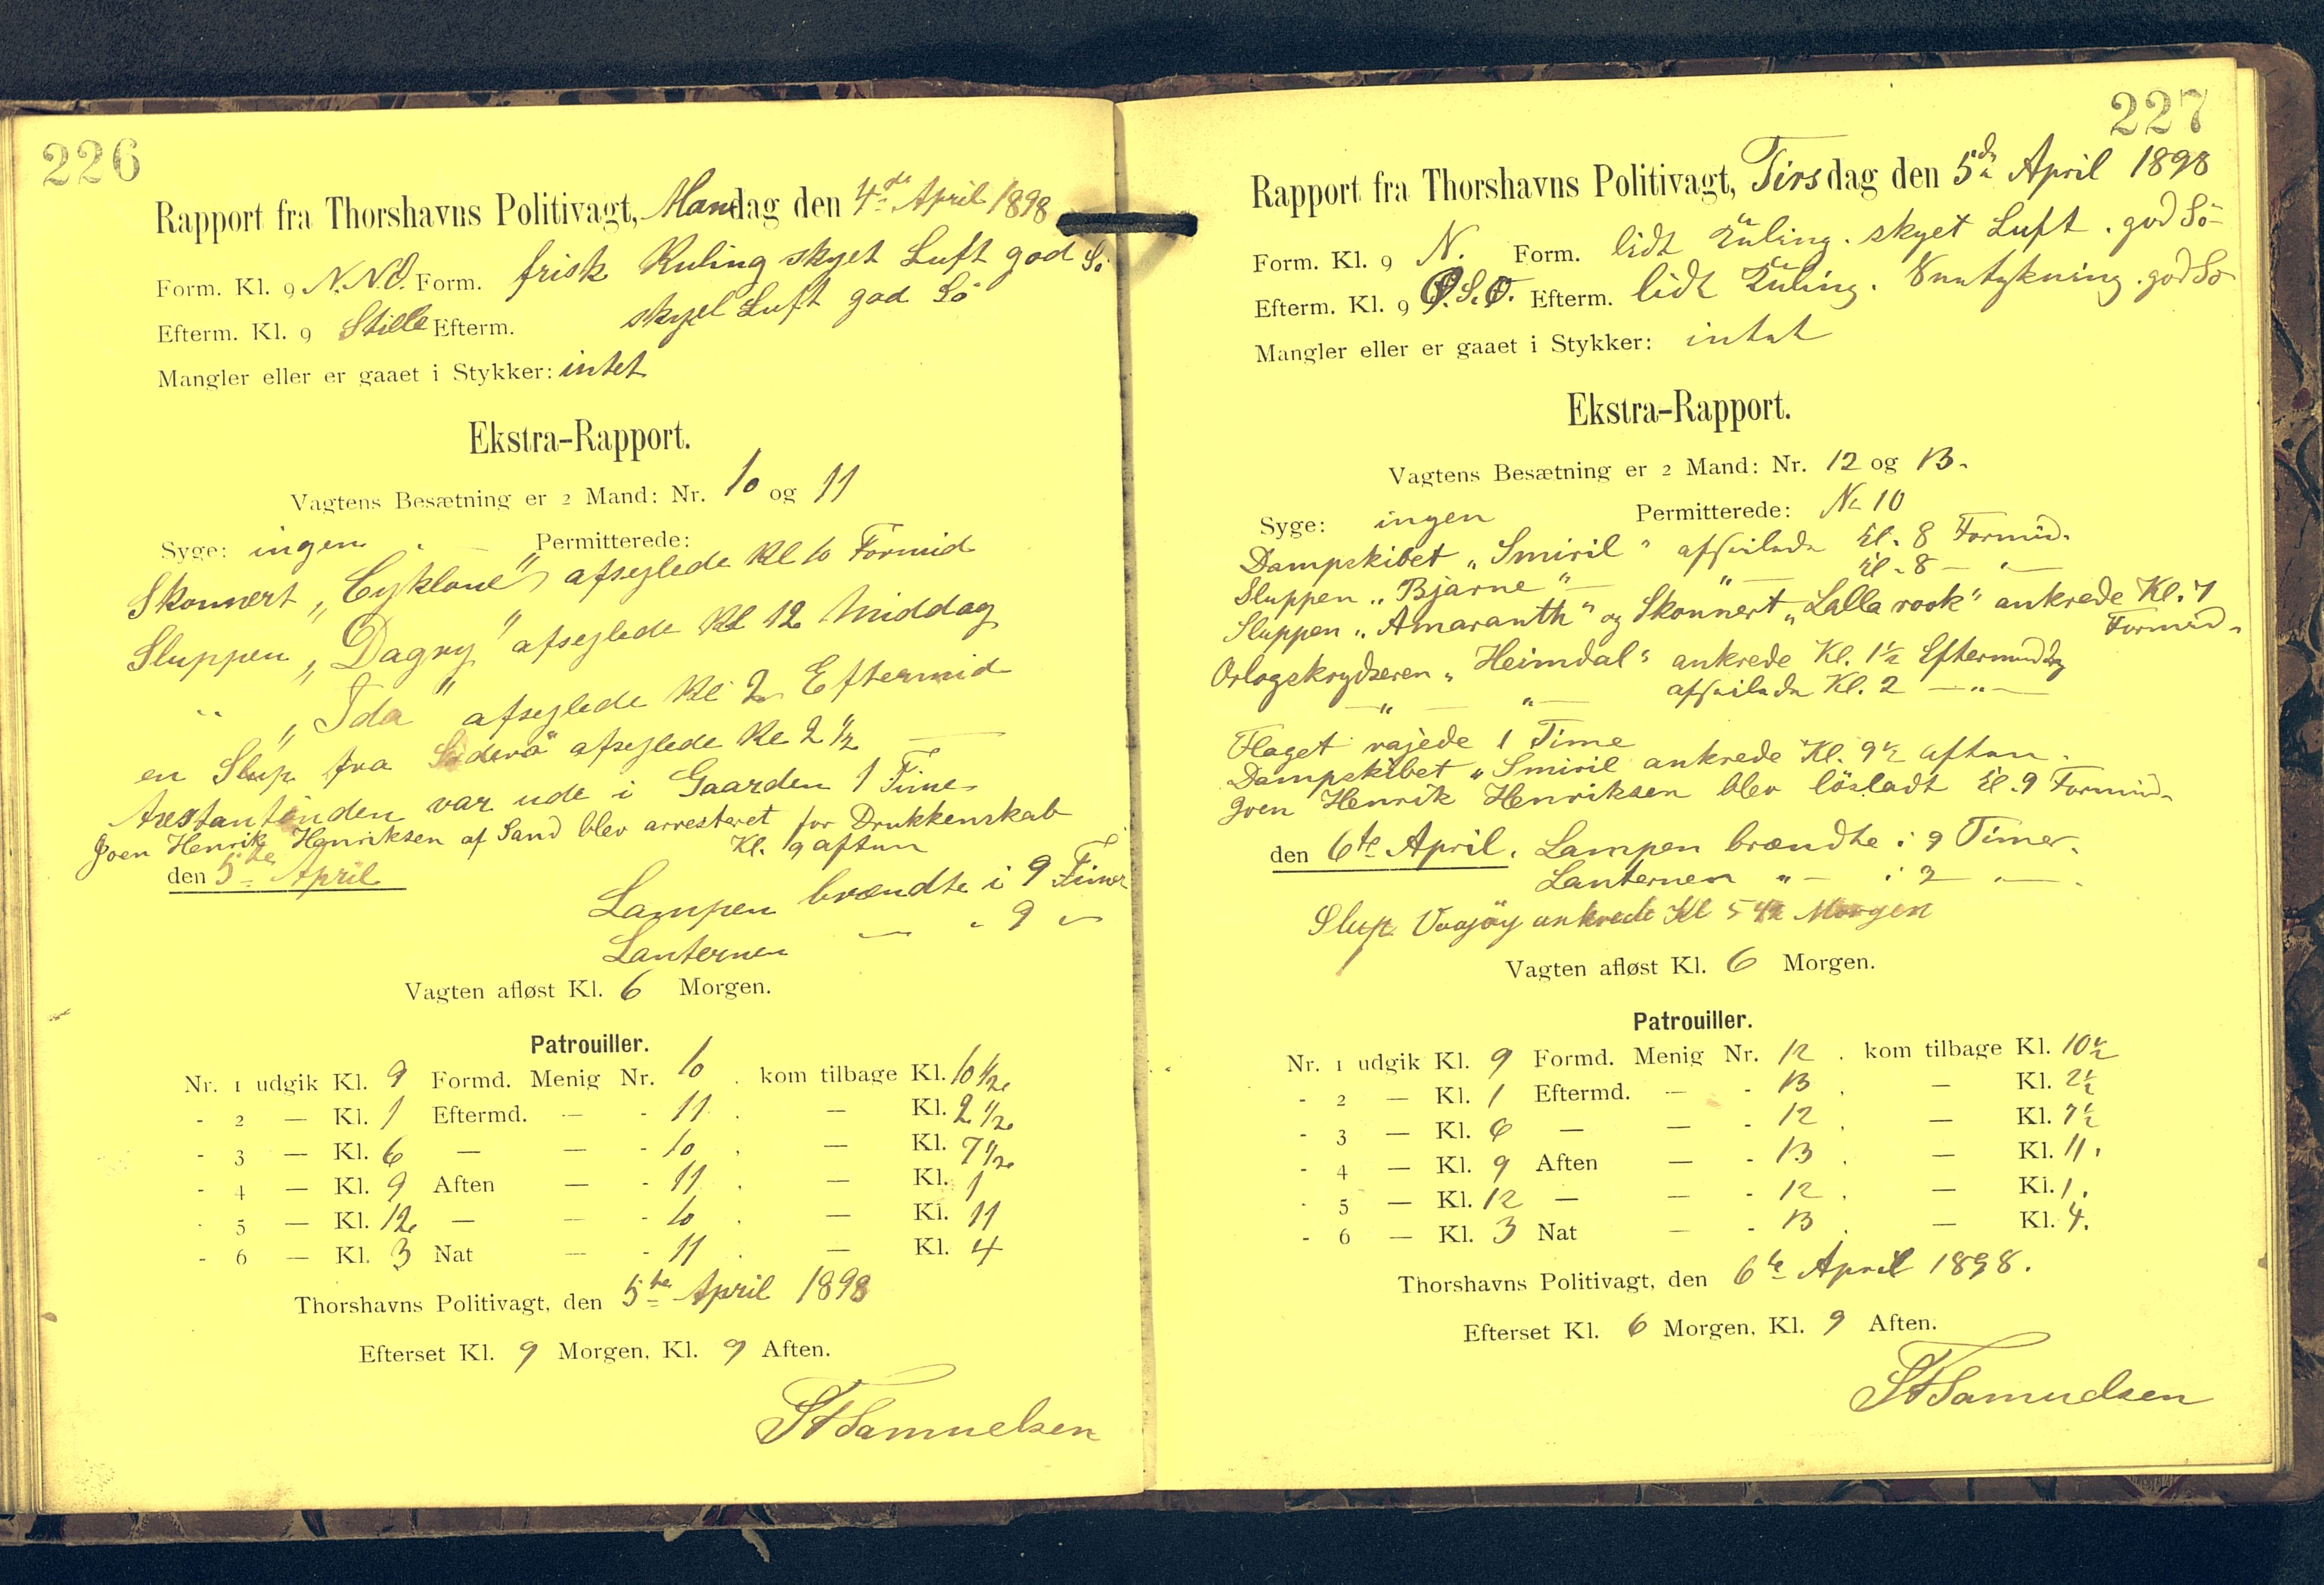 226
Rapport fra Thorshavns Politivagt, Mandag den 4de April 1898
Form. Kl. 9 N.N.O. Form. frisk Kuling skyet Luft god Sö
Efterm. Kl. 9 Stille Efterm. skyet Luft god Sö
Mangler eller er gaaet i Stykker: intet
Ekstra-Rapport.
Vagtens Besætning er 2 Mand: Nr. 10 og 11
Syge: ingen Permitterede:
Skonnert „Cyklone" afseglede Kl 10 Formid
Sluppen „Dagny" afseglede Kl 12 Middag
" „Ida" afseglede Kl 2 Eftermid
en Slup fra Süderö afseglede Kl 2 1/2 —
Arestantinden var ude i Gaarden 1 Time
Joen Henrik Henriksen af Sand blev arresteret for Drukkenskab
Kl. 9 aften
den 5te April
Lampen brændte i 9 Timer
Lanternen — " 9 "
Vagten afløst Kl. 6 Morgen.
Patrouiller.
Nr. 1 udgik Kl. 9 Formd. Menig Nr. 10 . kom tilbage Kl. 10 1/2
- 2 — Kl. 1 Eftermd. — - 11 . — Kl. 2 1/2
- 3 — Kl. 6 — — - 10 . — Kl. 7 1/2
- 4 — Kl. 9 Aften — - 11 . — Kl. 1
- 5 — Kl. 12 — — - 10 . — Kl. 11
- 6 — Kl. 3 Nat — - 11 . — Kl. 4
Thorshavns Politivagt, den 5te April 1898
Efterset Kl. 9 Morgen, Kl. 9 Aften.
Samuelsen
227
Rapport fra Thorshavns Politivagt, Tirsdag den 5te April 1898
Form. Kl. 9 N. Form. lidt Kuling. skyet Luft. god Sö
Efterm. Kl. 9 O.S.O. Efterm. lidt Kuling. Sneetykning. god Sö
Mangler eller er gaaet i Stykker: intet
Ekstra-Rapport.
Vagtens Besætning er 2 Mand: Nr. 12 og 13.
Syge: ingen Permitterede: Nr 10
Dampskibet „Smiril" afseilede Kl. 8 Formid.
Sluppen „Bjarne" — " — Kl. 8 — " —
Sluppen „Amaranth" og Skonnert „Lalla rook" ankrede Kl. 7
Formid.
Orlogskrydseren „Heimdal" ankrede Kl. 1 1/2 Eftermiddag
— " — " — afseilede Kl. 2 — " —
Flaget vajede 1 Time
Dampskibet „Smiril ankrede Kl. 9 1/2 aften.
Joen Henrik Henriksen blev lösladt Kl. 9 Formid.
den 6te April. Lampen brændte i 9 Timer.
Lanternen " — i 2 — " —.
Slup. ankrede Kl 5 Morgen
Vagten afløst Kl. 6 Morgen.
Patrouiller.
Nr. 1 udgik Kl. 9 Formd. Menig Nr. 12 . kom tilbage Kl. 10 1/2
- 2 — Kl. 1 Eftermd. — - 13 . — Kl. 2 1/2
- 3 — Kl. 6 — — - 12 . — Kl. 7 1/2
- 4 — Kl. 9 Aften — - 13 . — Kl. 11.
- 5 — Kl. 12 — — - 12 . — Kl. 1.
- 6 — Kl. 3 Nat — - 13 . — Kl. 4.
Thorshavns Politivagt, den 6te April 1898.
Efterset Kl. 6 Morgen, Kl. 9 Aften.
Samuelsen